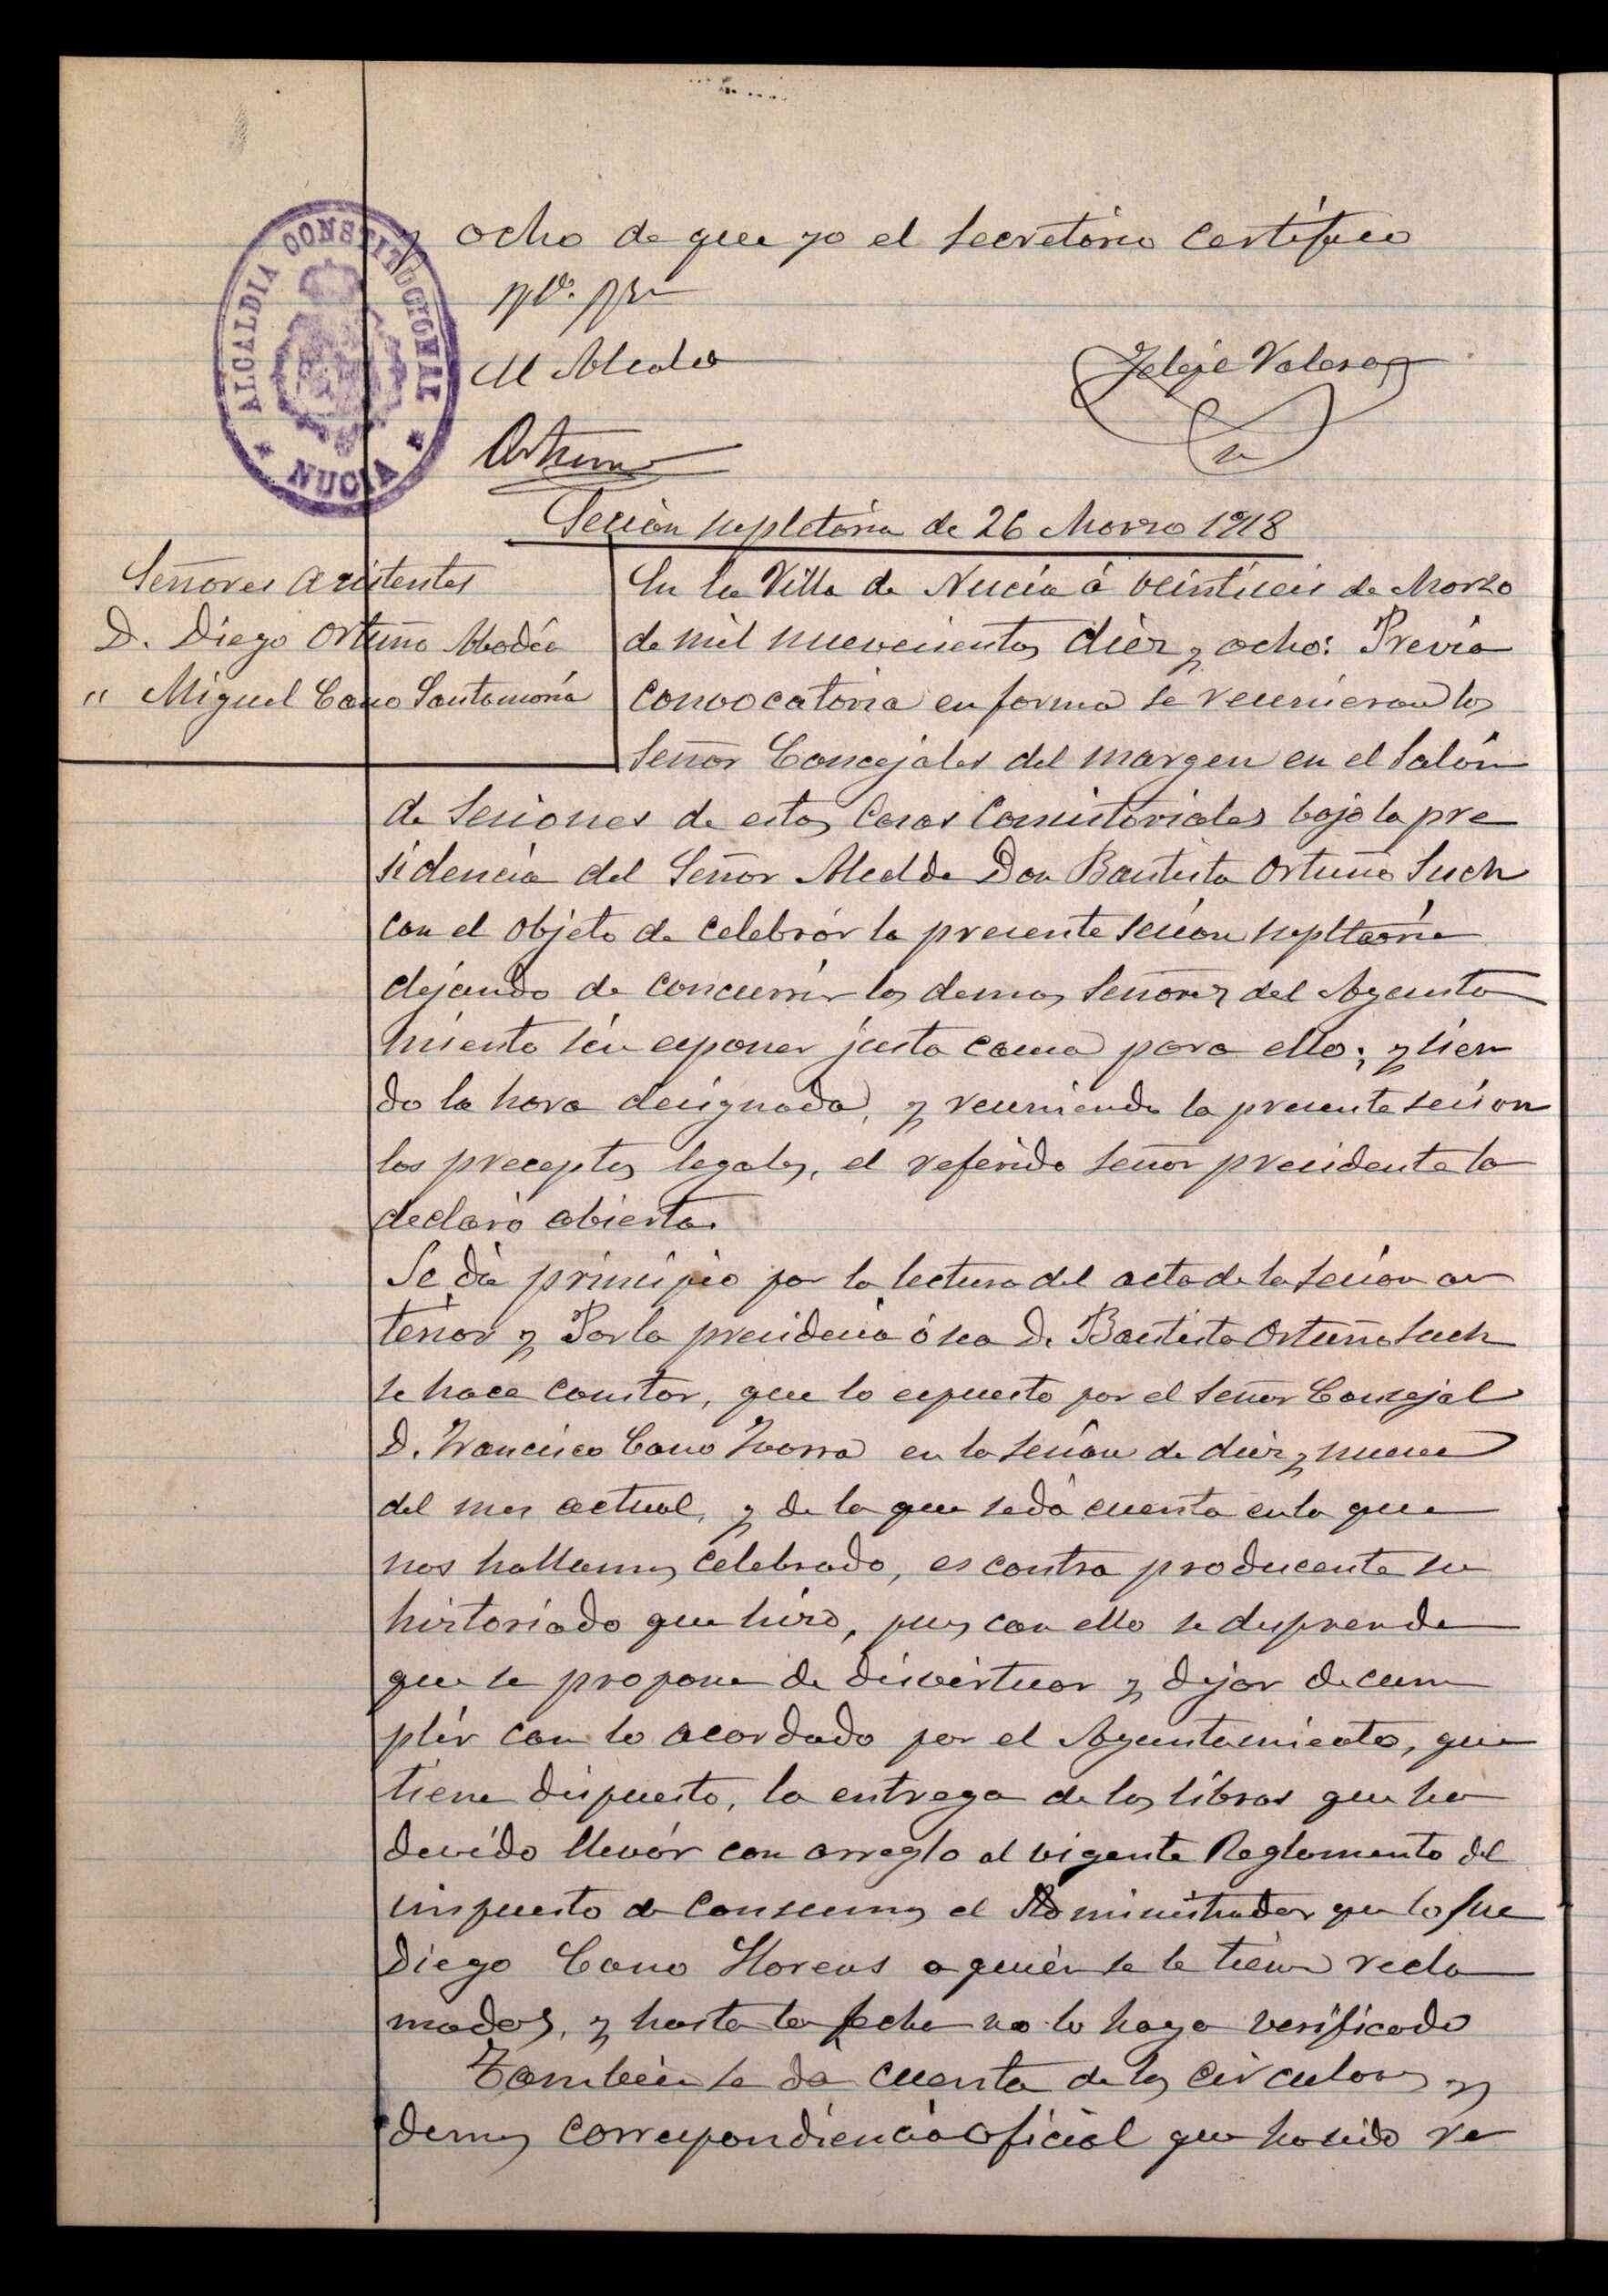 y ocho de que yo el Secretário Certífico
Vº. Bº
El Alcalde
Felipe Valera
Ortuño
ALCALDIA CONSTITUCIONAL
* NUCIA *
Sesión supletória de 26 Marzo 1918
Señores asistentes
D. Diego Ortuño Abadía
" Miguel Cano Santamaría
En la Villa de Nucía á veintiseis de Marzo
de mil nuevecientos diez y ocho: Prévia
convocatoria en forma se reunieron los
Señor Concejales del margen en el Salón
de Sesiones de estas Casas Consistoriales bajo la pre
sidencia del Señor Alcalde Don Bautista Ortuño Such
con el objeto de celebrár la presente sesion supltaória
dejando de concurrir los demas Señores del Ayunta
miento sin exponer justa causa para ello; y sien
do la hora designada, y reuniendo la presente sesion
los preceptos legales, el referido Señor presidente la
declaró abierta.
Se dá principio por la lectura del acta de la sesion an
terior y Por la presidencia ó sea D. Bautista Ortuño Such
se hace constar, que lo expuesto por el Señor Consejal
D. Francisco Cano Ivorra en la sesion de diez y nueve
del mes actual, y de la que se dá cuenta en la que
nos hallamos celebrado, es contra producente su
historiado que hizo, pues con ello se desprende
que se propone de disvirtuar y dejar de cum
plir con lo acordado por el Ayuntamiento, que
tiene dispuesto, la entrega de los libros que ha
devído llevár con arreglo al vigente Reglamento del
impuesto de Consumos el Administrador que lo fue
Diego Cano Llorens a quién se le tiene recla
mados, y hasta la fecha no lo haya verificado
Tambien se dá cuenta de las circulares y
demas correspondiencia oficial que ha sido re